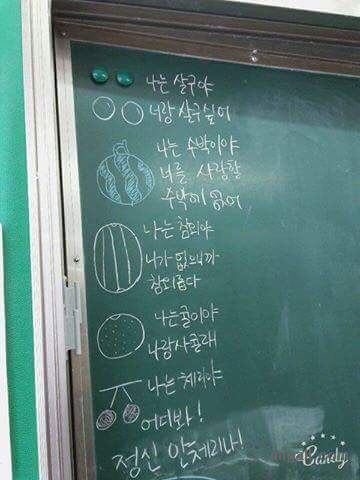 나는 살구야
너랑 살구싶어
나는 수박이야
너를 사랑할
수박에 없어
나는 참외야
니가 없으니까
참외롭다
나는 귤이야
나랑사귤래
나는 체리야
어디봐!
정신 안체리나!
Candy